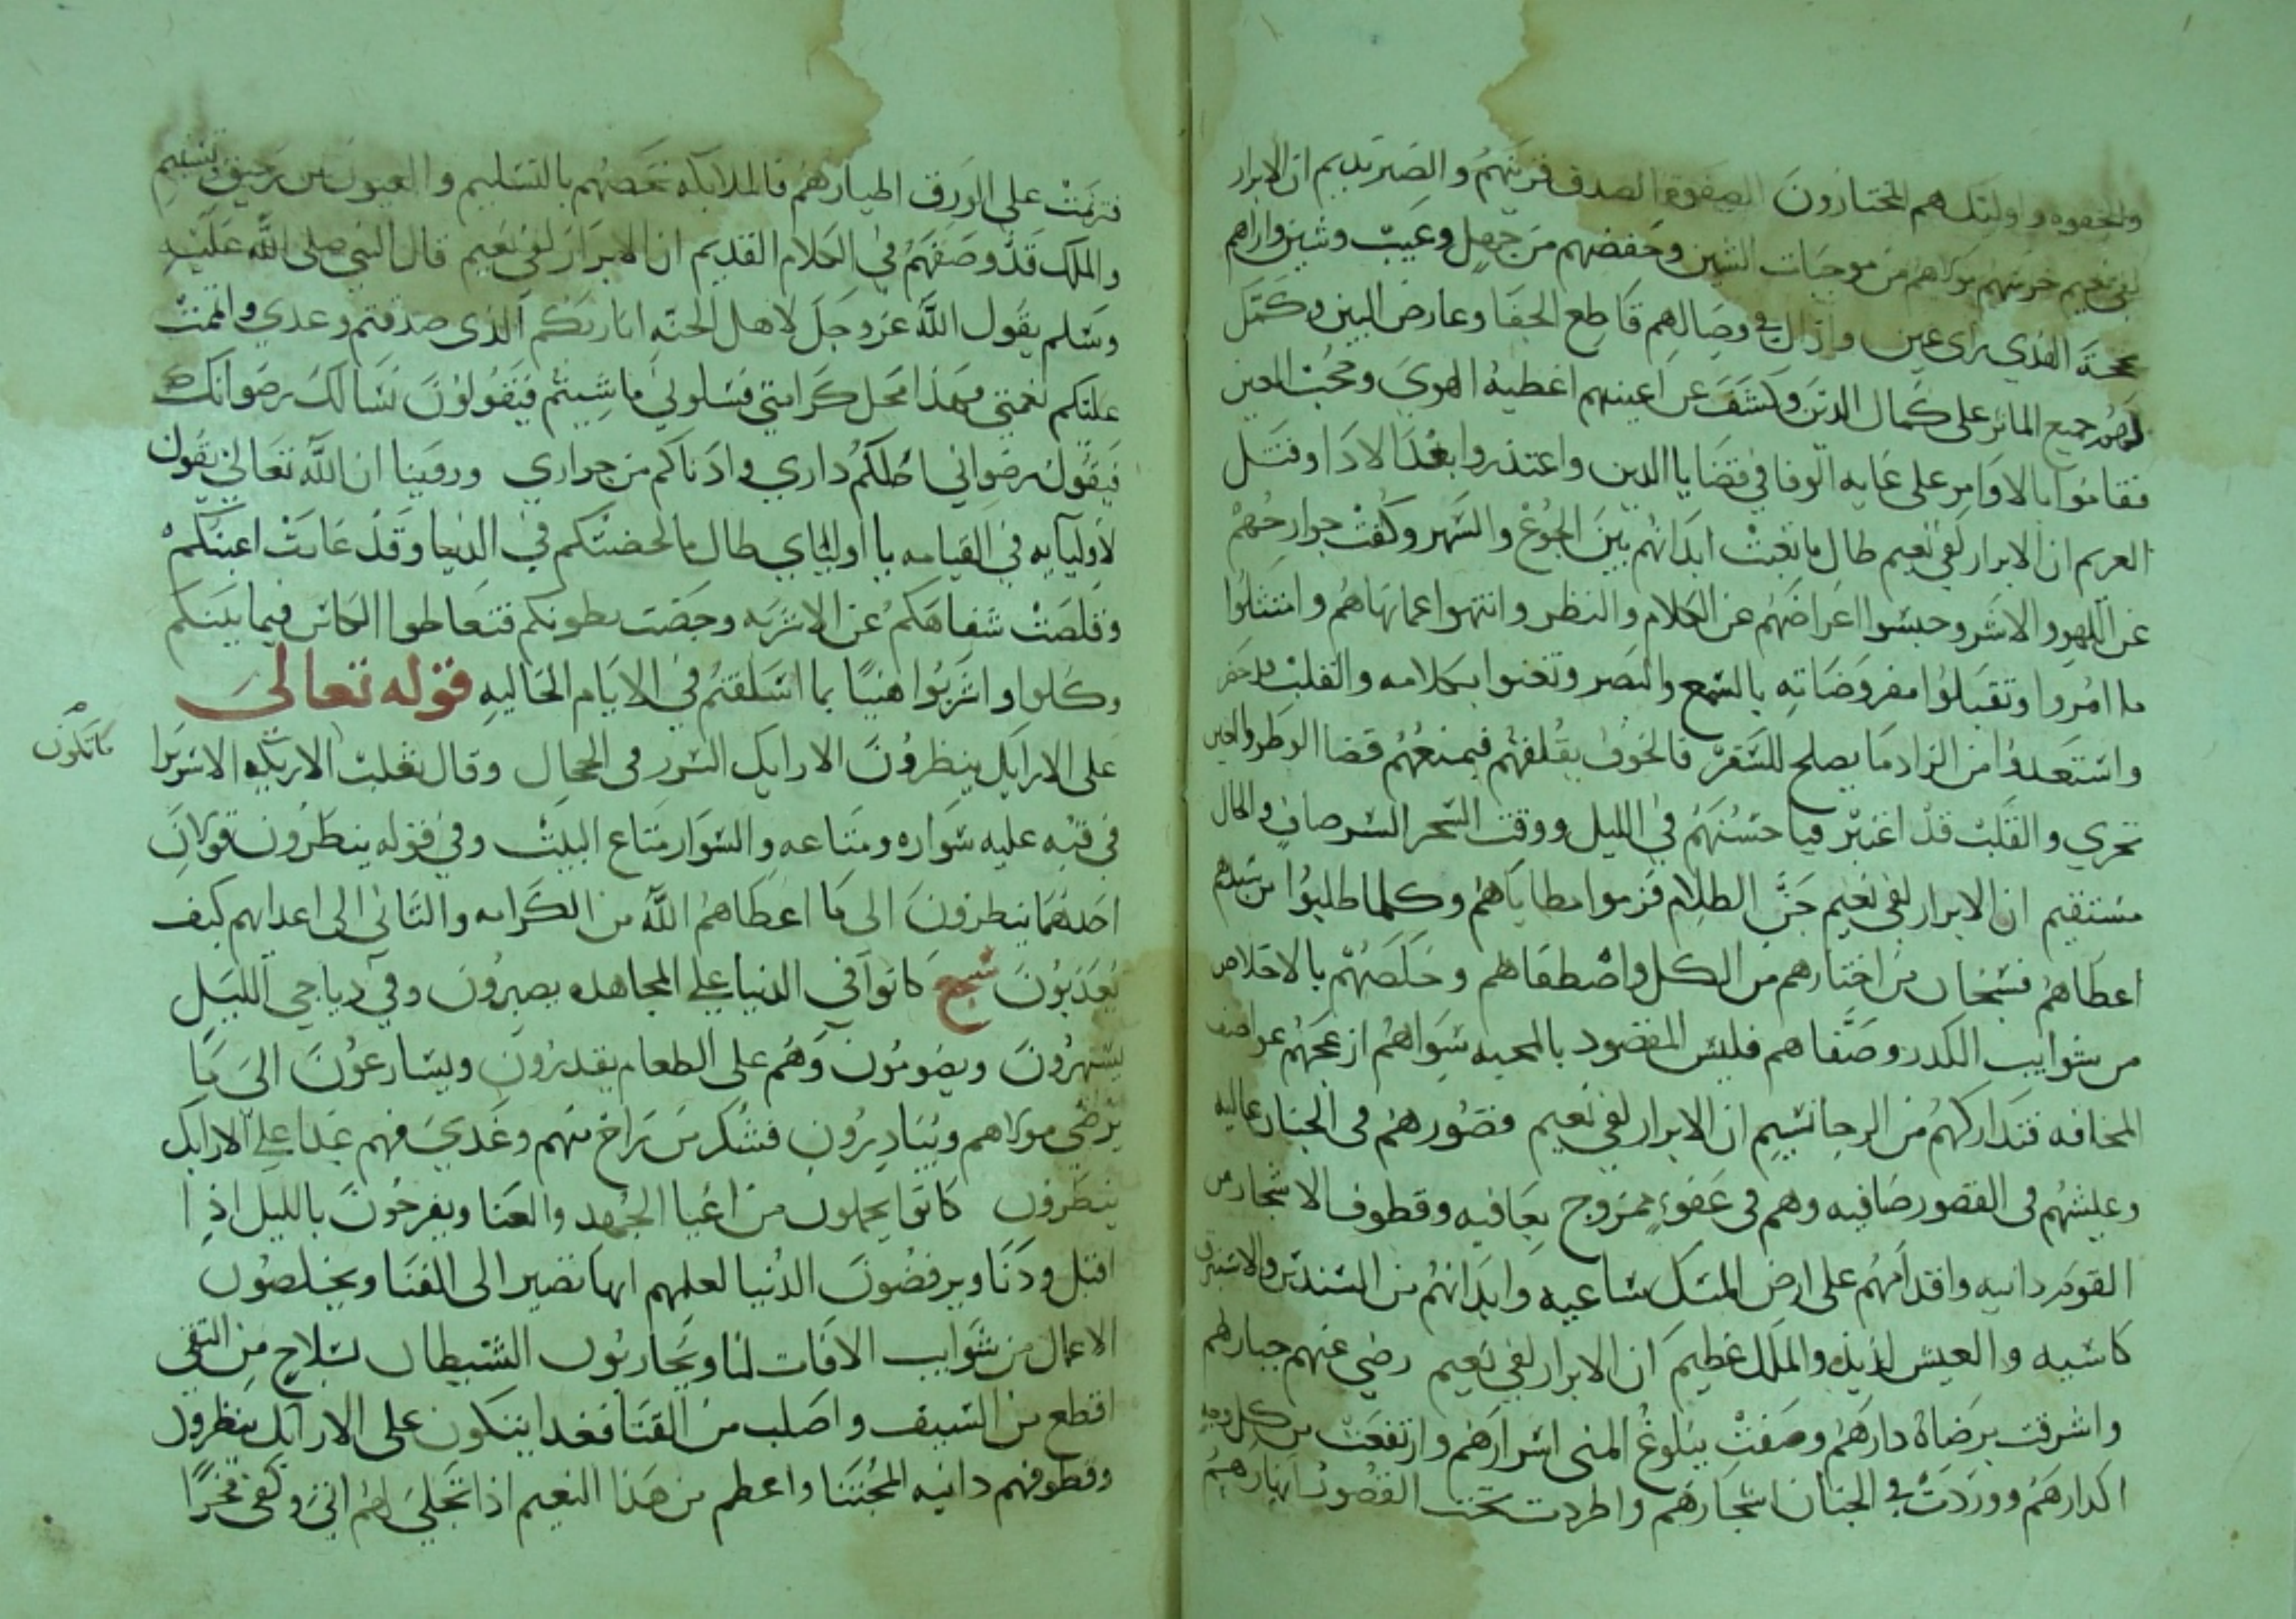 والصفوه واولئك هم المختارون الصفوة الصدق قرينهم والصبر نديم ان الابرار
لفي نعيم حرسهم مولاهم من موجبات الشين وحفضهم من جهل وعيب وشين واراهم
محجة الهدي راى عين وازال في وصالهم قاطع الجفا وعارض البين وكمل
لهم جميع المآثر على كمال الدين وكشف عن اعينهم اغطيه الهوى وحجب الغين
فقاموا بالاوامر على غايه الوفا في قضايا الدين واعتذروا بعد الادا وفتل
الغريم ان الابرار لفي نعيم طال ما تعبت ابدانهم بين الجوع والسهر وكفت جوارحهم
عن اللهو والاشر وحبسوا اعراضهم عن الكلام والنظر وانتهوا عما نهاهم وامتثلوا
ما امروا وتقبلوا مفروضاته بالسمع والبصر وتغنوا بكلامه والقلب قد حضر
واستعدوا من الزاد ما يصلح للسفر فالخوف يقلقهم فيمنعهم قضا الوطر والعين
تجري والقلب قد اعتبر فيا حسنهم في الليل ووقت السحر السر صاف والحال
مستقيم ان الابرار لفي نعيم جن الظلام فزموا مطاياهم وكلما طلبوا من سيدهم
اعطاهم فسبحان من اختارهم من الكل واصطفاهم وخلصهم بالاخلاص
من شوايب الكدر وصفاهم فليس المقصود بالمحبه سواهم ازعجهم عواصف
المخافه فتداركهم من الرجا نسيم ان الابرار لفي نعيم قصورهم في الجنان عاليه
وعيشهم في القصور صافيه وهم في عفو ممزوج بعافيه وقطوف الاشجار من
القوم دانيه واقدامهم على ارض المسك ساعيه وابدانهم من السندس والاستبرق
كاسيه والعيش لذيذ والملك عظيم ان الابرار لفي نعيم رضي عنهم جبارهم
واشرقت برضاه دارهم وصفت ببلوغ المنى اسرارهم وارتفعت من كل وجه
اكدارهم ووردت في الجنان اشجارهم واطردت تحت القصور انهارهم
فترنمت على الورق اطيارهم فالملايكه تخصهم بالتسليم والعيون من رحيق وتسنيم
والملك قد وصفهم في الكلام القديم ان الابرار لفي نعيم قال النبي صلى الله عليه
وسلم يقول الله عز وجل لاهل الجنه انا ربكم الذى صدقتم وعدي واتممت
عليكم نعمتي فهذا محل كرامتي فسلوني ما شيتم فيقولون نسالك رضوانك
فيقول رضواني احلكم داري وادناكم من جواري وروينا ان الله تعالى يقول
لاوليآيه في القيامه يا اوليآي طال ما لحضتكم في الدنيا وقد غارت اعينكم
وقلصت شفاهكم عن الاشربه وخفت بطونكم فتعاطوا الكاس فيما بينكم
وكلوا واشربوا هنيًا بما اسلفتم في الايام الخاليه قوله تعالى
على الارايك ينظرون الارايك السرر في الحجال وقال ثعلب الاريكه الا سريرا
ما تكون
في قبه عليه شواره ومتاعه والشوار متاع البيت وفي قوله ينظرون قولان
احدهما ينظرون الى ما اعطاهم الله من الكرامه والثاني الى اعدايهم كيف
يعذبون سجع كانوا في الدنيا على المجاهده يصبرون وفي دياجي الليل
يسهرون ويصومون وهم على الطعام يقدرون ويسارعون الى ما
يرضي مولاهم ويبادرون فشكر من راح منهم وغدي فهم غدا على الارايك
ينظرون كانوا يحملون من اعيا الجهد والعنا ويفرحون بالليل اذا
اقبل ودنا ويرفضون الدنيا لعلمهم انها تصير الى الفنا ويخلصون
الاعمال من شوايب الافات لنا ويحاربون الشيطان بسلاح من التقى
اقطع من السيف واصلب من القنا فغدا يتكون على الارآيك ينظرون
وقطوفهم دانيه المجتنا واعظم من هذا النعيم اذا تجلى لهم وكفى فخرًا